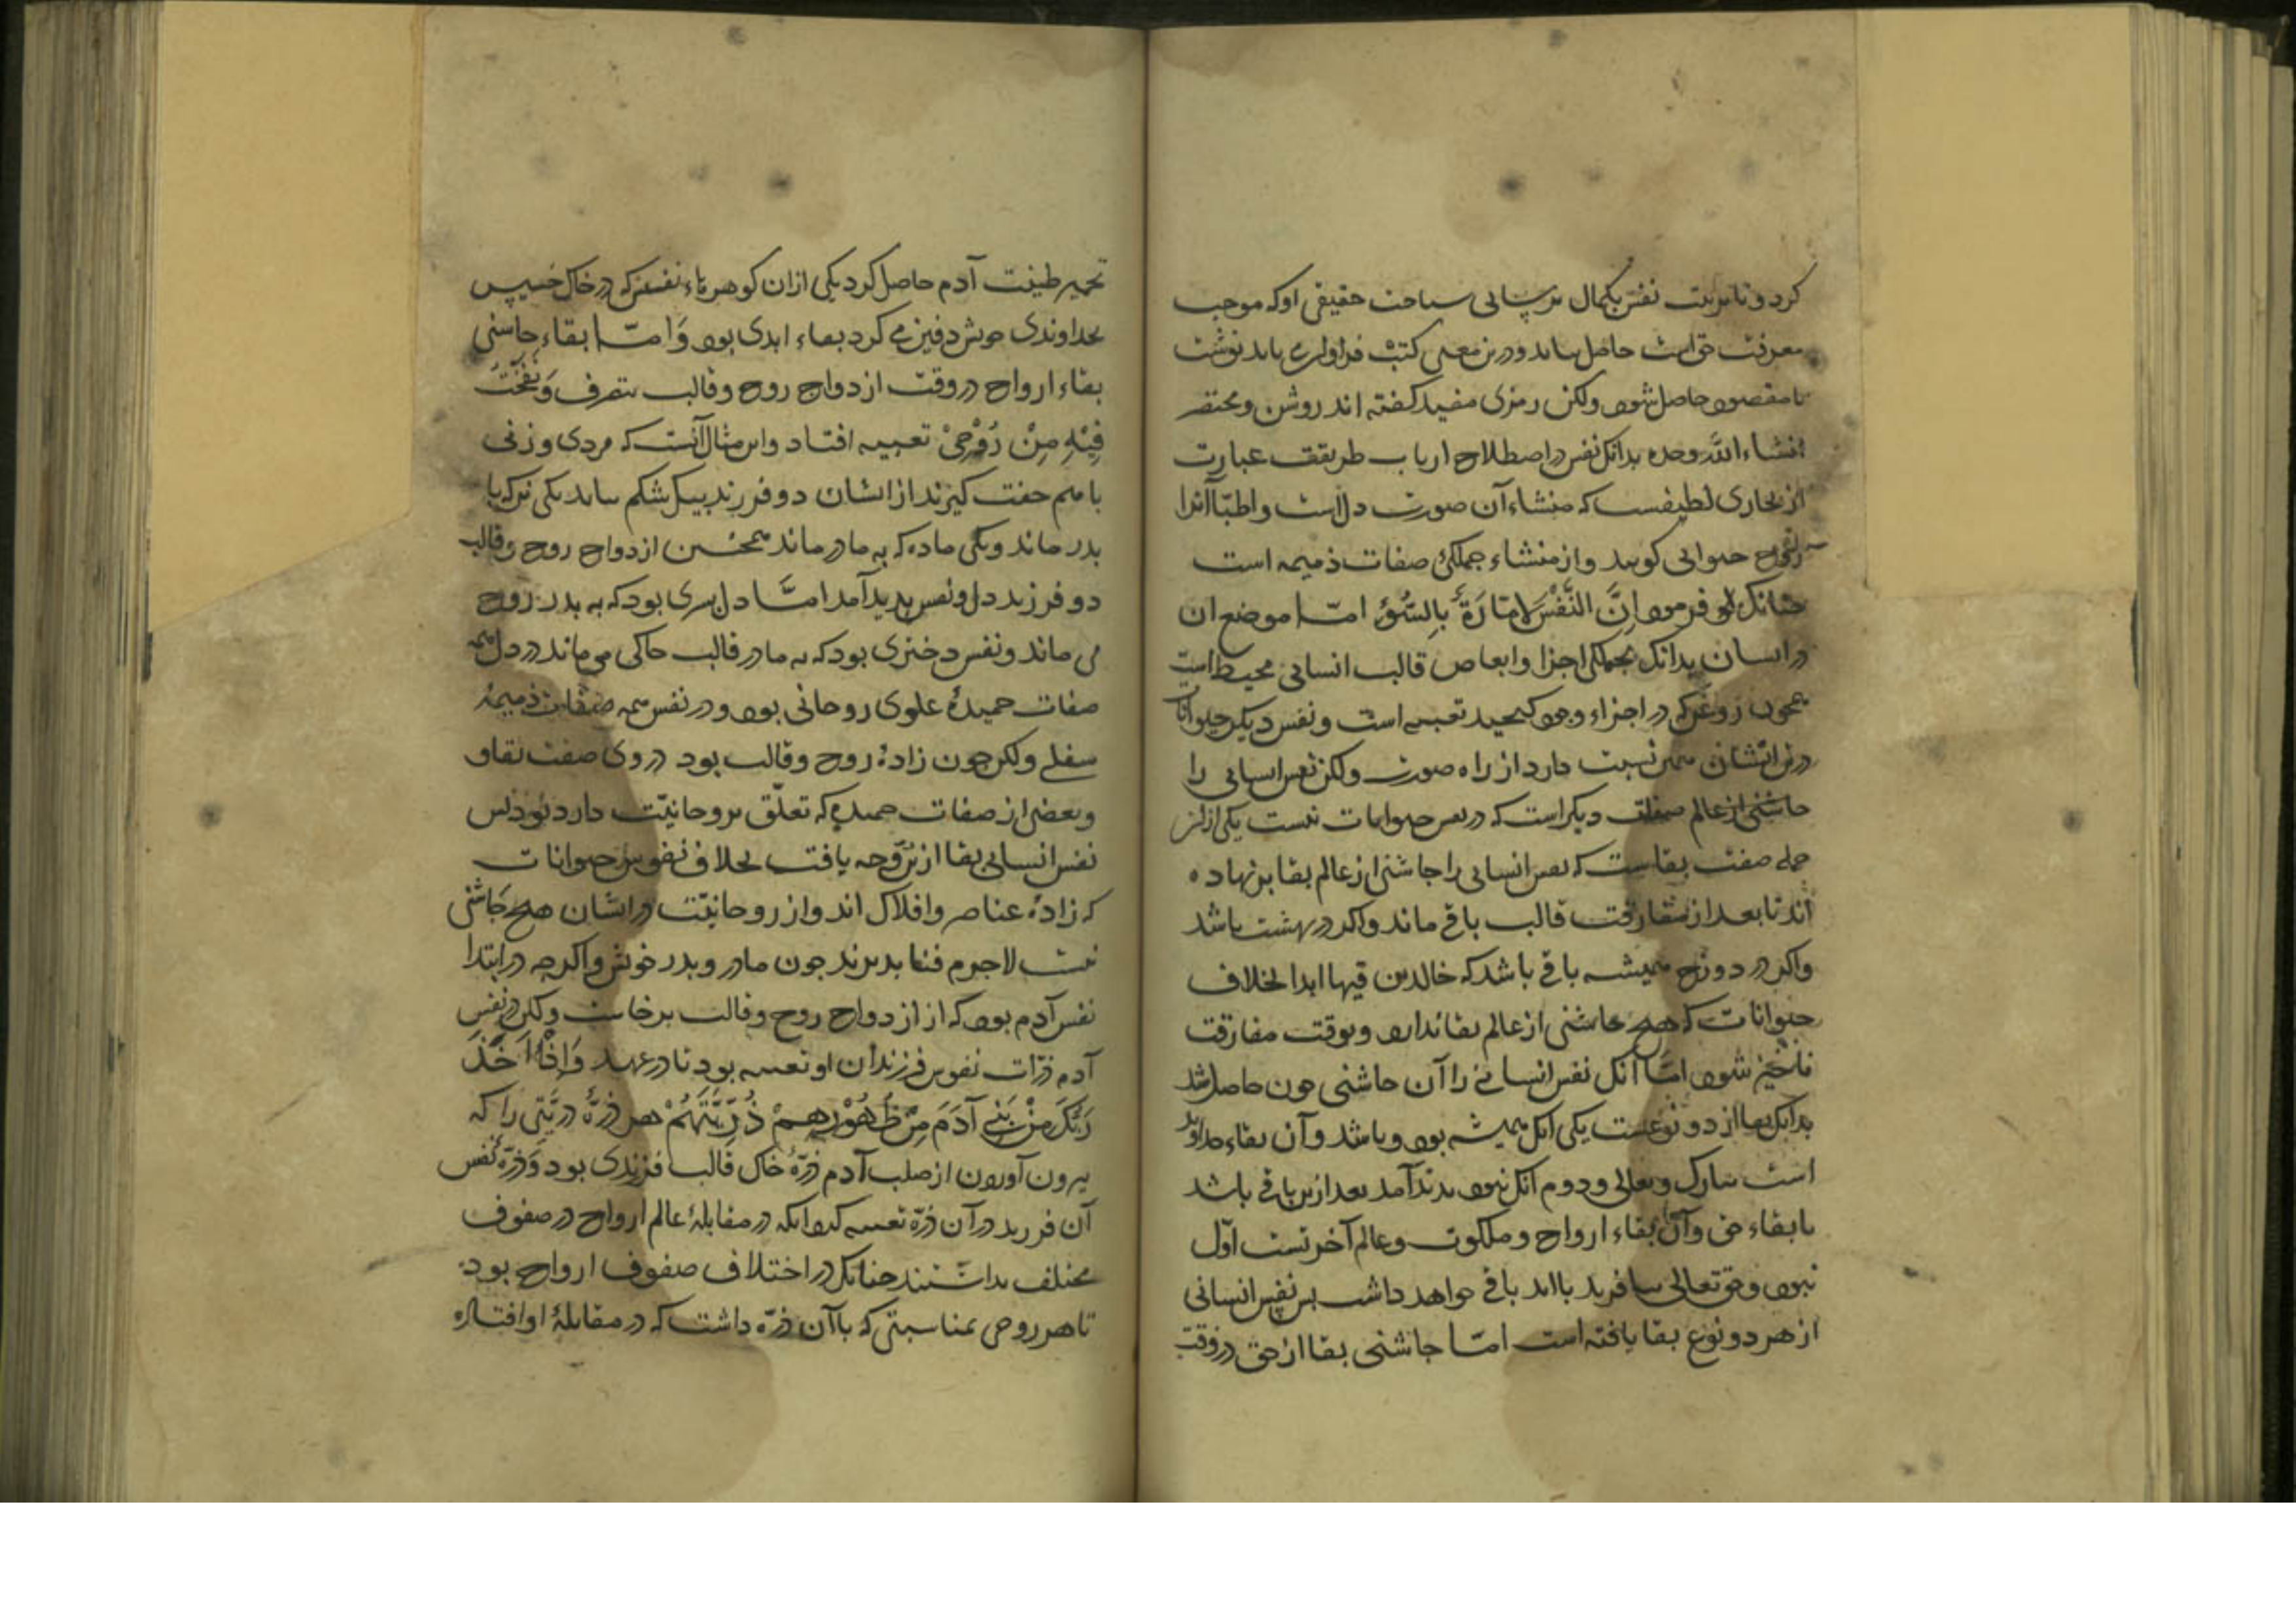 کرد و تا تربیت نفس بکمال نرسانی ساحت حقیقی او که موجب
معرفت حق است حاصل نیاید و درین معنی کتب فراوان می باید نوشت
تا مقصود حاصل شود ولکن رمزی مفید گفته اند روشن و مختصر
انشاء الله وحده بدانک نفس در اصطلاح ارباب طریقت عبارت
از بخاری لطیفست که منشاء آن صورت دل است و اطبّا آنرا
روح حیوانی گویند و از منشاء جملگی صفات ذمیمه است
چنانک فرمود إِنَّ النَّفْسَ لَامّارَةٌ بِالسُّوءِ امّا موضع ان
در انسان بدانک بجملگی اجزا و ابعاض قالب انسانی محیط است
همچون روغن که در اجزاء وجود کنجید تعبیه است و نفس دیگر حیوانات
درین ایشان همین نسبت دارد از راه صورت ولکن نفس انسانی را
چاشنی از عالم صفات دیگر است که در نفس حیوانات نیست یکی از ان
جمله صفت بقاست که نفس انسانی را چاشنی از عالم بقا بر نهاده
اند تا بعد از مفارقت قالب باقی ماند و اگر در بهشت باشد
و اگر در دوزخ همیشه باقی باشد که خالدین فیها ابدا بخلاف
حیوانات که هیچ چاشنی از عالم بقا ندارد و بوقت مفارقت
ناچیز شود امّا آنک نفس انسانی را آن چاشنی چون حاصل شد
بدانک بقا از دو نوعست یکی انک همیشه بود و باشد و آن بقاء خداوند
است تبارک و تعالی و دوم انک نبود پدید آمد بعد ازین باقی باشد
با بقاء حق و آن بقاء ارواح و ملکوت و عالم آخرتست اوّل
نبود و حق تعالی بیافرید باابد باقی خواهد داشت پس نفس انسانی
از هر دو نوع بقا یافته است امّا چاشنی بقا از حق در وقت
تخمیر طینت آدم حاصل کرد یکی ازان گوهرهاء نفیس که در خاک خسیس
بخداوندی خویش دفین می کرد بقاء ابدی بود وَامّا بقاء چاشنی
بقاء ارواح در وقت ازدواج روح و قالب بتصرف وَنَفَخْتُ
فِیْهِ مِنْ رُوْحِیْ تعبیه افتاد و این مثال آنست که مردی و زنی
با هم جفت گیرند از ایشان دو فرزند بیک شکم بیاید یکی نر که با
پدر ماند و یکی ماده که به مادر ماند همچنین ازدواج روح و قالب
دو فرزند دل و نفس پدید آمد امّا دل پسری بود که به پدر روح
می ماند و نفس دختری بود که به مادر قالب خاکی می ماند در دل همه
صفات حمیدهٔ علوی روحانی بود و در نفس همه صفات ذمیمهٔ
سفلی ولکن چون زادهٔ روح و قالب بود در وی صفت بقاو
و بعضی از صفات حمیده که تعلّق بروحانیّت دارد بود پس
نفس انسانی بقا ازین وجه یافت بخلاف نفوس حیوانات
که زادهٔ عناصر و افلاک اند و از روحانیّت در ایشان هیچ چاشنی
نیست لاجرم فنا پذیرند چون مادر و پدر خویش و اگرچه در ابتدا
نفس آدم بود که از ازدواج روح و قالب برخاست ولکن در نفس
آدم ذرّات نفوس فرزندان او تعبیه بود تا در عهد وَاِذْ اَخَذَ
رَبُّکَ مِنْ بَنِی آدَمَ مِنْ ظُهُوْرِهِمْ ذُرِّیَّتَهُمْ هر ذرّهٔ ذریّتی را که
بیرون آوردن از صلب آدم ذرّهٔ خاک قالب فرزندی بود وَ ذرّهٔ نفس
آن فرزند در آن ذرّه تعبیه که در مقابلهٔ عالم ارواح در صفوف
مختلف بداشتند چنانک در اختلاف صفوف ارواح بود
تا هر روحی بمناسبتی که باآن ذرّه داشت که در مقابلهٔ او افتاده